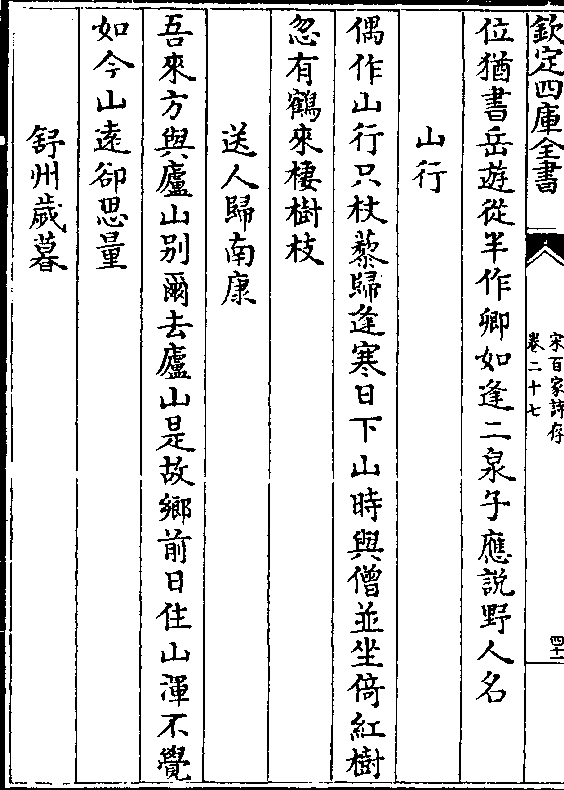 欽定四庫全書
宋百家詩存
卷二十七
四十一
位猶書岳遊從半作卿如逢二泉子應說野人名
山行
偶作山行只杖藜歸逢寒日下山時與僧並坐倚紅樹
忽有鶴來棲樹枝
送人歸南康
吾來方與廬山别爾去廬山是故鄉前日住山渾不覺
如今山遠卻思量
舒州歲暮